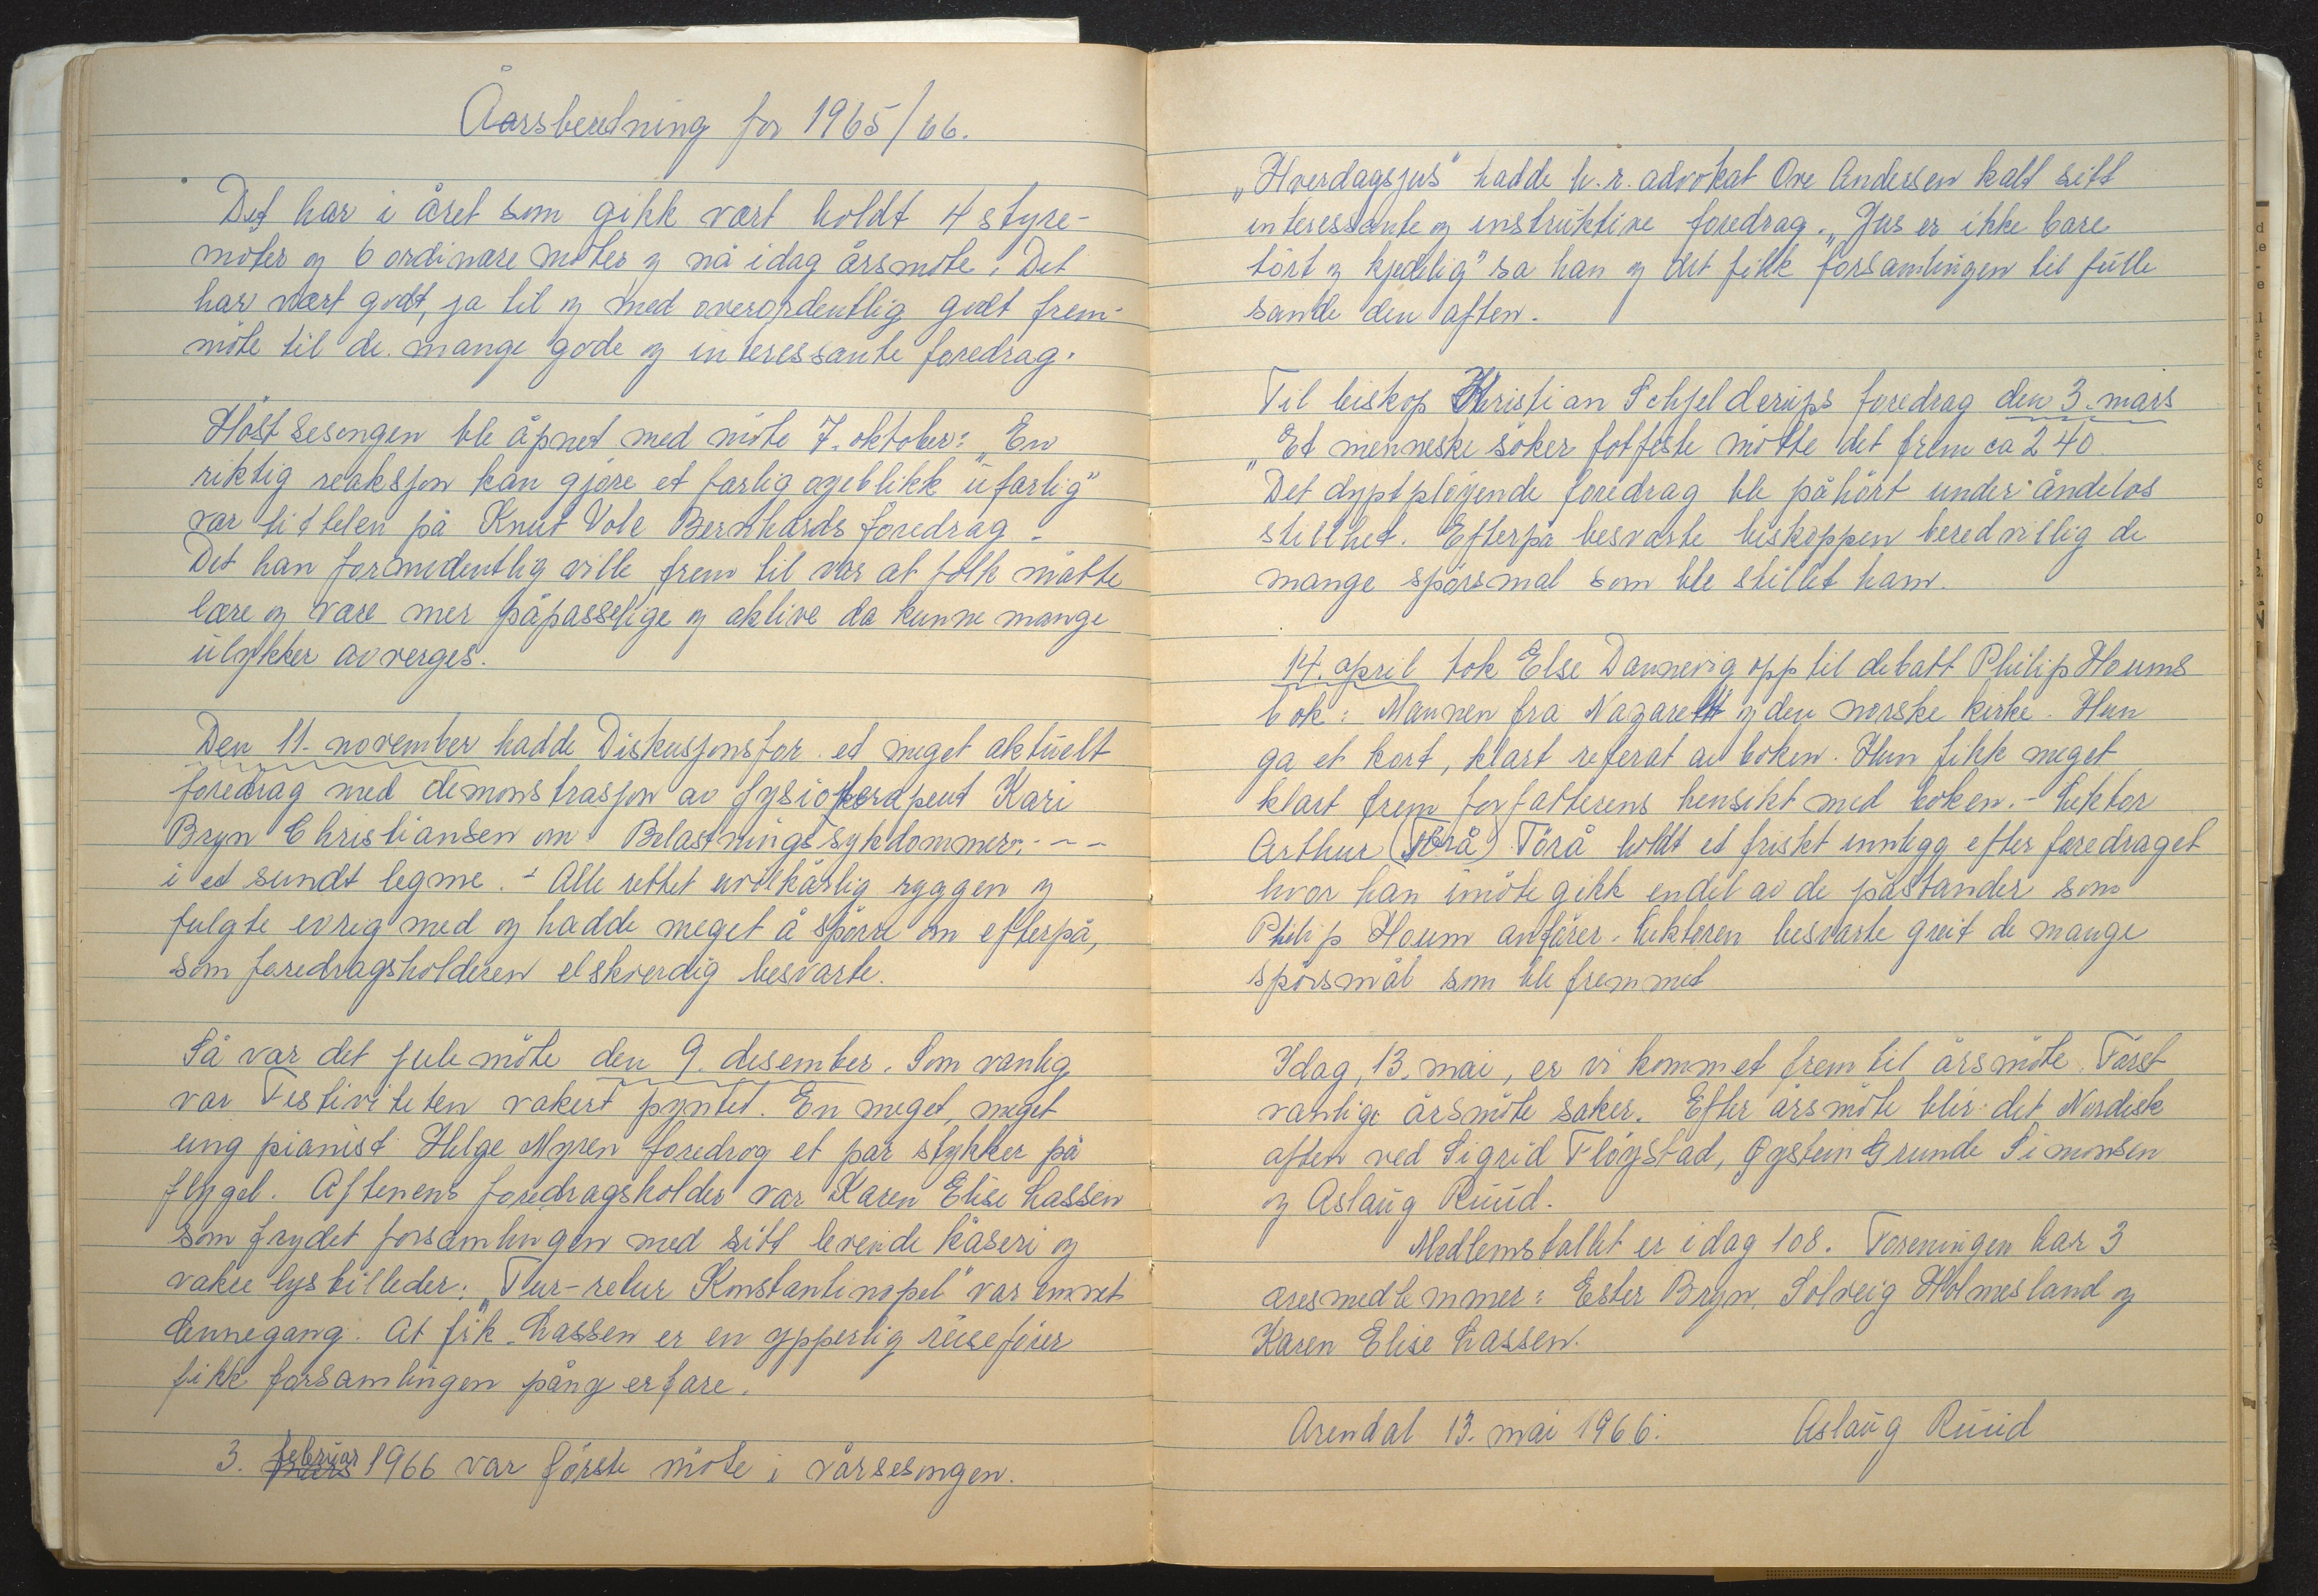 Årsberedning for 1965/66.
Det har i året som gikk vært holdt 4 styre-
møter og 6 ordinære møter og nå idag årsmøte. Det
har vært godt, ja til og med overordentlig godt frem-
møte til de mange gode og interessante foredrag.
Høstsesongen ble åpnet med møte 7. oktober: "En
riktig reaksjon kan gjøre et farlig øyeblikk ufarlig"
var tittelen på Knut Vole Bernhards foredrag -
Det han formedentlig ville frem til var at folk måtte
lære og være mer påpasselige og aktive da kunne mange
ulykker avverges.
Den 11. november hadde Diskusjonsfor. et meget aktuelt
foredrag med demonstrasjon av fysioterapeut Kari
Bryn Christiansen om Belastningssykdommer. - - -
i et sundt legme. - Alle rettet uvilkårlig ryggen og
fulgte ivrig med og hadde meget å spørre om efterpå,
som foredragsholderen elskverdig besvarte.
Så var det julemøte den 9. desember. Som vanlig
var Festiviteten vakert pyntet. En meget, meget
ung pianist Helge Myren foredrog et par stykker på
flygel. Aftenens foredragsholder var Karen Elise Lassen
som frydet forsamlingen med sitt levende kåseri og
vakre lysbilleder: "Tur-retur Konstantinopel" var emnet
dennegang. At frk. Lassen er en ypperlig reisefører
fikk forsamlingen påny erfare.
3. februar 1966 var første møte i vårsesongen.
"Hverdagsjus" hadde h.r. advokat Ove Andersen kalt sitt
interessante og instruktive foredrag. "Jus er ikke bare
tørt og kjedelig" sa han og det fikk forsamlingen til fulle
sande den aften.
Til biskop Kristian Schjelderups foredrag den 3. mars
"Et menneske søker fotfeste møtte det frem ca 240
Det dyptpløyende foredrag ble påhørt under åndeløs
stillhet. Efterpå besvarte biskoppen beredvillig de
mange spørsmål som ble stillet ham.
14. april tok Else Dannevig opp til debatt Philip Houms
bok: Mannen fra Nazareth og den norske kirke. Hun
ga et kort, klart referat av boken. Hun fikk meget
klart frem forfatterens hensikt med boken. - Lektor
Arthur (Torå) Törå holdt et friskt innlegg efter foredraget
hvor han imøtegikk endel av de påstander som
Philip Houm anfører. Lektoren besvarte greit de mange
spørsmål som ble fremmet
Idag, 13. mai, er vi kommet frem til årsmøte. Først
vanlige årsmøte saker. Efter årsmøte blir det Nordisk
aften ved Sigrid Fløystad, Øystein Grunde Simonsen
og Aslaug Ruud.
Medlemstallet er idag 108. Foreningen har 3
æresmedlemmer: Ester Bryn, Solveig Holmesland og
Karen Elise Lassen.
Arendal 13. mai 1966. Aslaug Ruud